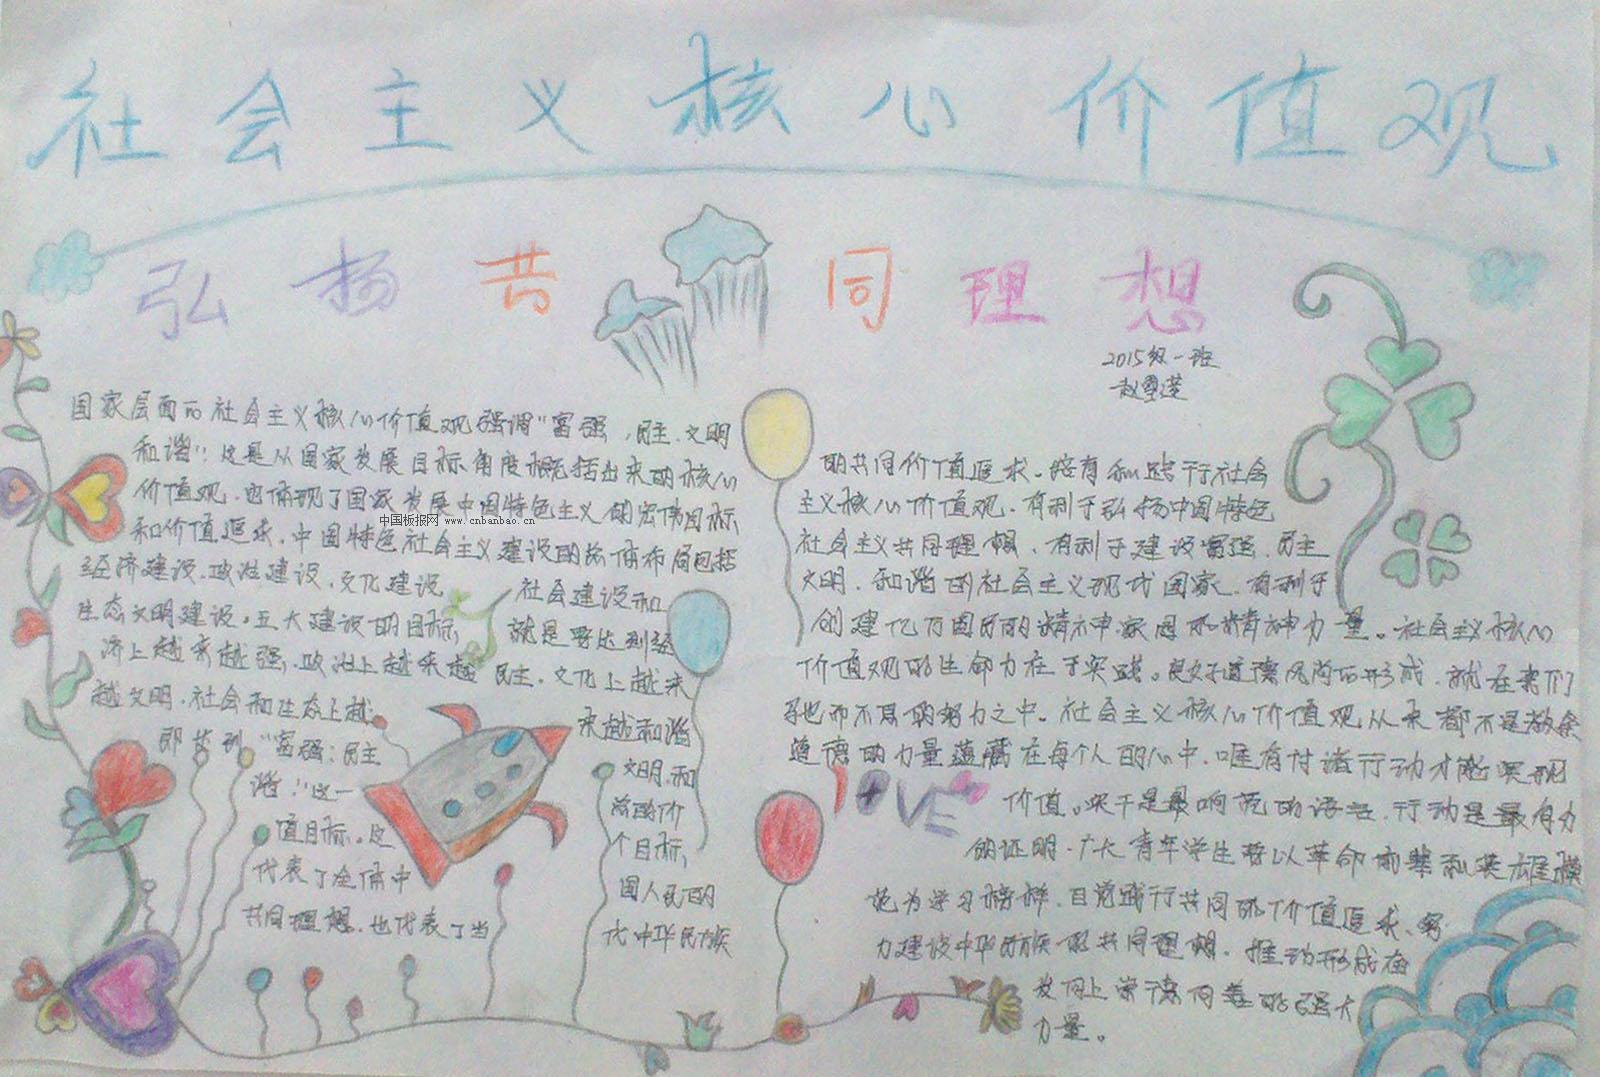 社会主义核心价值观
弘扬共同理想
2015级一班
赵雪莲
国家层面的社会主义核心价值观强调“富强,民主、文明
和谐”:这是从国家发展目标角度概括出来的核心
价值观、也体现了国家发展中国特色主义的宏伟目标
中国板报网 www.cnbanbao.cn
和价值追求、中国特色社会主义建设的总体布局包括
经济建设、政治建设、文化建设
社会建设和
生态文明建设。五大建设的目标,
就是要达到经
济上越来越强、政治上越来越
民主、文化上越来
越文明、社会和生态上越
来越和谐
即达到“富强:民主
文明、和
谐:”这一
价
值目标。这
个目标,
代表了全体中
国人民的
共同理想、也代表了当
代中华民族
的共同价值追求。培育和践行社会
主义核心价值观、有利于弘扬中国特色
社会主义共同理想、有利于建设富强、民主
文明、和谐的社会主义现代国家、有利于
创建亿万国民的精神家园和精神力量。社会主义核心
价值观的生命力在于实践。良好道德风尚的形成、就在我们
孜孜不息的努力之中。社会主义核心价值观从来都不是
道德的力量蕴藏在每个人的心中、唯有付诸行动才能实现
LOVE
价值。实干是最响亮的语言、行动是最有力
的证明、广大青年学生要以革命前辈和英雄模
范为学习榜样、自觉践行共同的价值追求、努
力建设中华民族的共同理想、推动形成奋
发向上崇德向善的强大
力量。